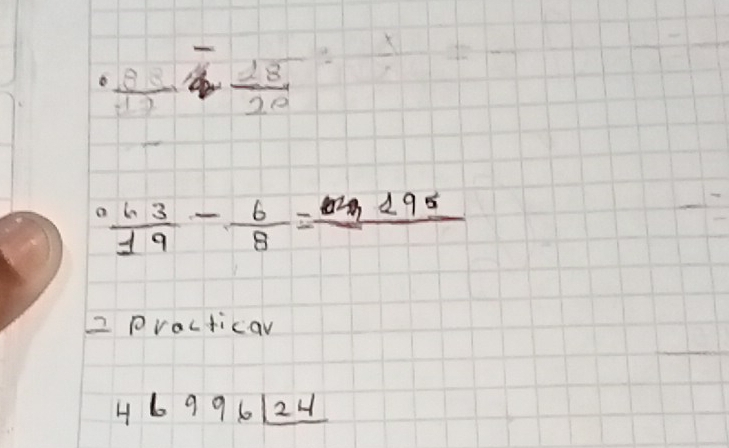 88/12 - 18/20 =
63/19 - 6/8 = 195
2 practicar
46996 |24